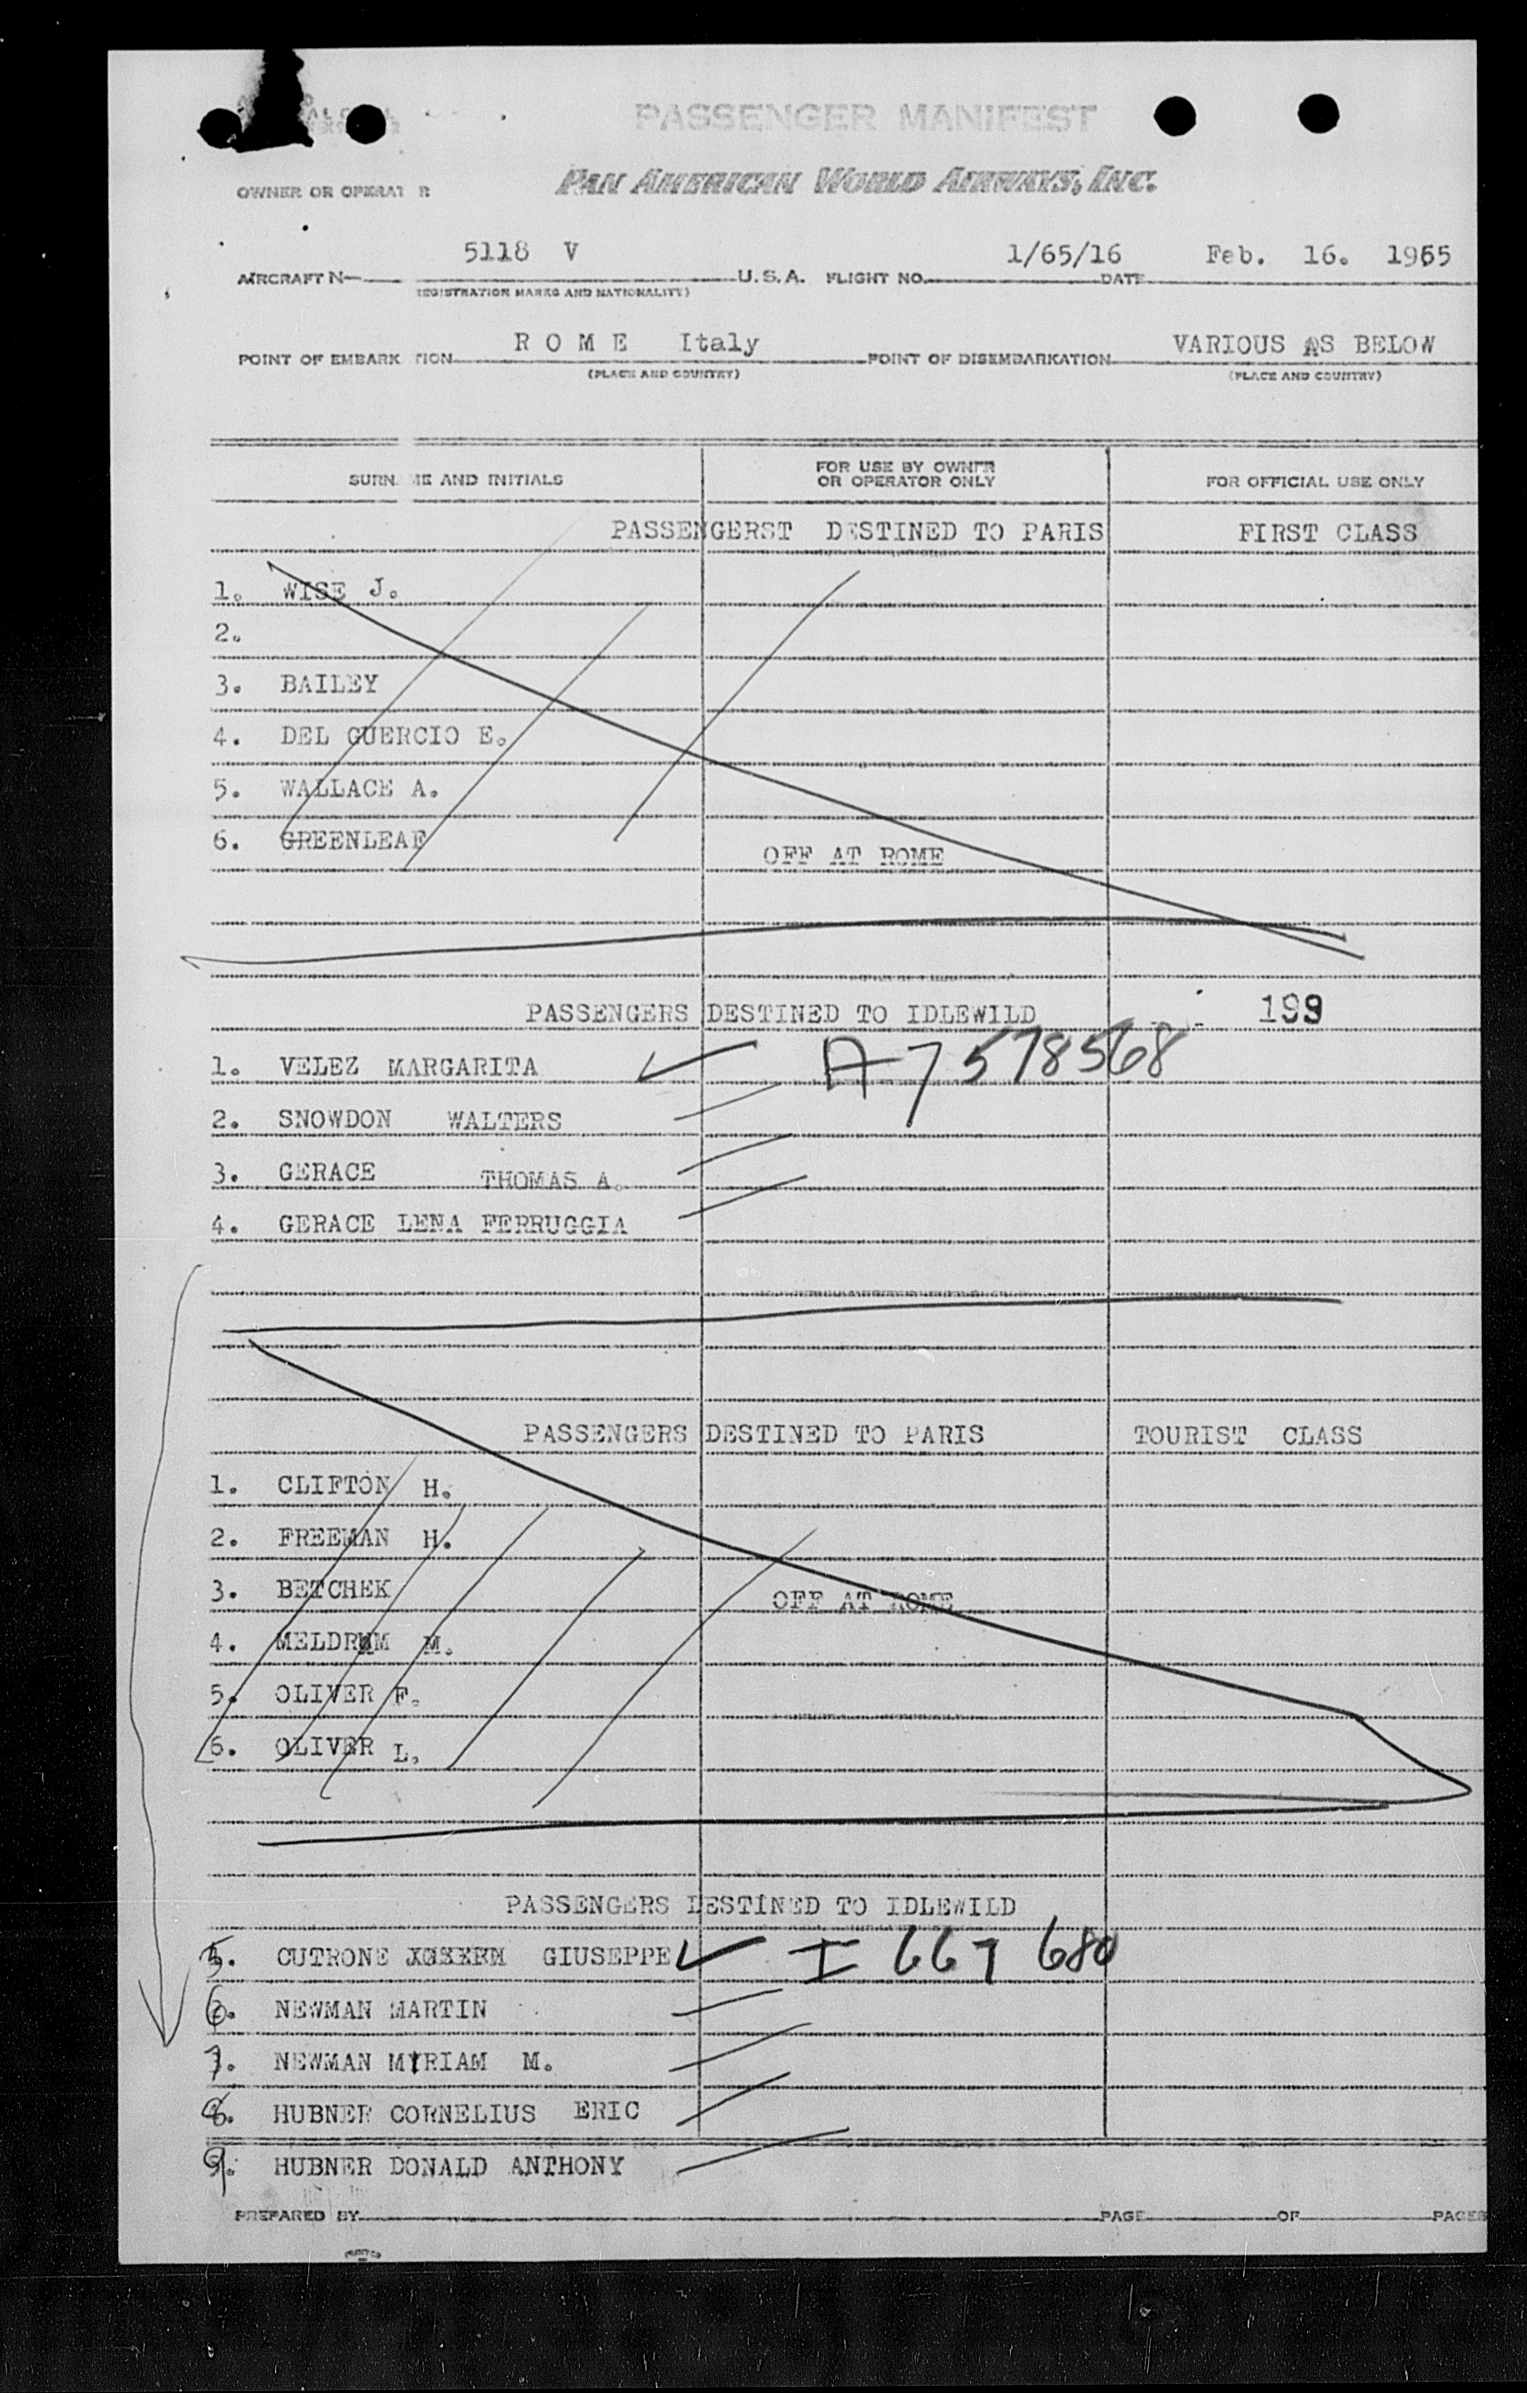 PASSENGER MANIFEST
OWNER OR OPERAT R PAN AMERICAN WORLD AIRWAYS, INC.
5118 V 1/65/16 Feb. 16. 1955
AIRCRAFT N— U.S.A. FLIGHT NO. DATE
(REGISTRATION MARKS AND NATIONALITY)
R O M E Italy VARIOUS AS BELOW
POINT OF EMBARK TION POINT OF DISEMBARKATION
(PLACE AND COUNTRY) (PLACE AND COUNTRY)
SURN ME AND INITIALS FOR USE BY OWNER OR OPERATOR ONLY FOR OFFICIAL USE ONLY
PASSENGERST DESTINED TO PARIS FIRST CLASS
1. WISE J.
2.
3. BAILEY
4. DEL GUERCIO E.
5. WALLACE A.
6. GREENLEAF
OFF AT ROME
PASSENGERS DESTINED TO IDLEWILD 199
1. VELEZ MARGARITA A7 578568
2. SNOWDON WALTERS
3. GERACE THOMAS A.
4. GERACE LENA FERRUGGIA
PASSENGERS DESTINED TO PARIS TOURIST CLASS
1. CLIFTON H.
2. FREEMAN H.
3. BETCHEK OFF AT ROME
4. MELDRUM M.
5. OLIVER F.
6. OLIVER L.
PASSENGERS DESTINED TO IDLEWILD
5. CUTRONE GIUSEPPE I 667 680
6. NEWMAN MARTIN
7. NEWMAN MYRIAM M.
8. HUBNER CORNELIUS ERIC
9. HUBNER DONALD ANTHONY
PREPARED BY PAGE OF PAGES